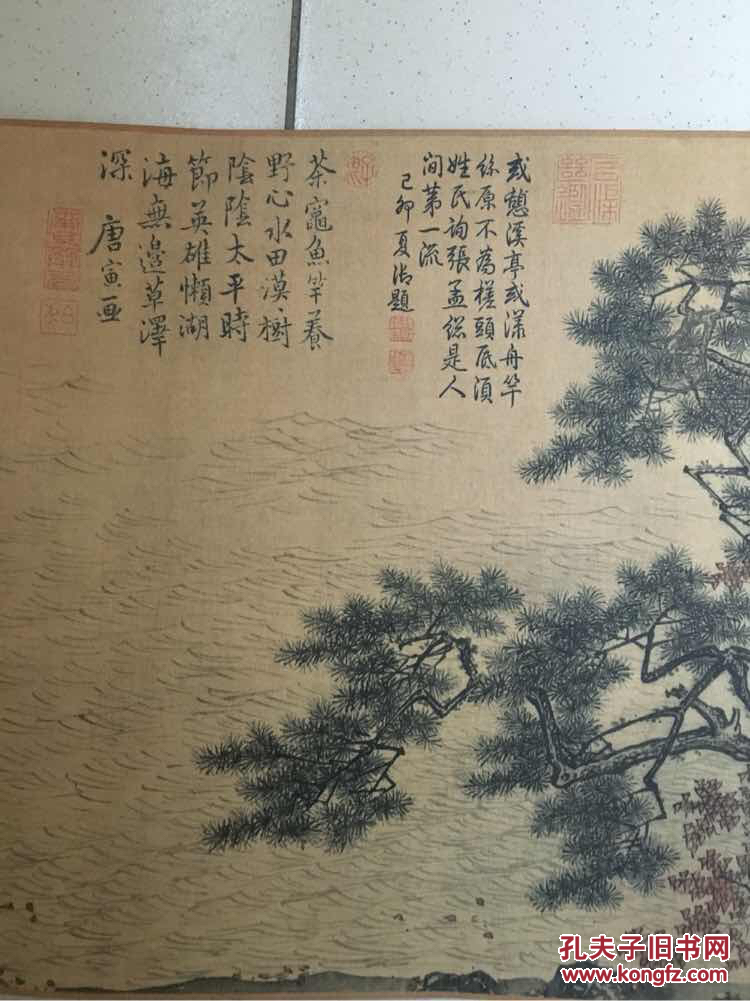 或憩溪亭或漾舟竿
絲原不為槎頭底須
姓氏詢張孟総是人
間第一流
己卯夏御題
茶竈魚竿養
野心水田漠〻樹
陰陰太平時
節英雄懶湖
海無邊草澤
深 唐寅画
孔夫子旧书网
www.kongfz.com